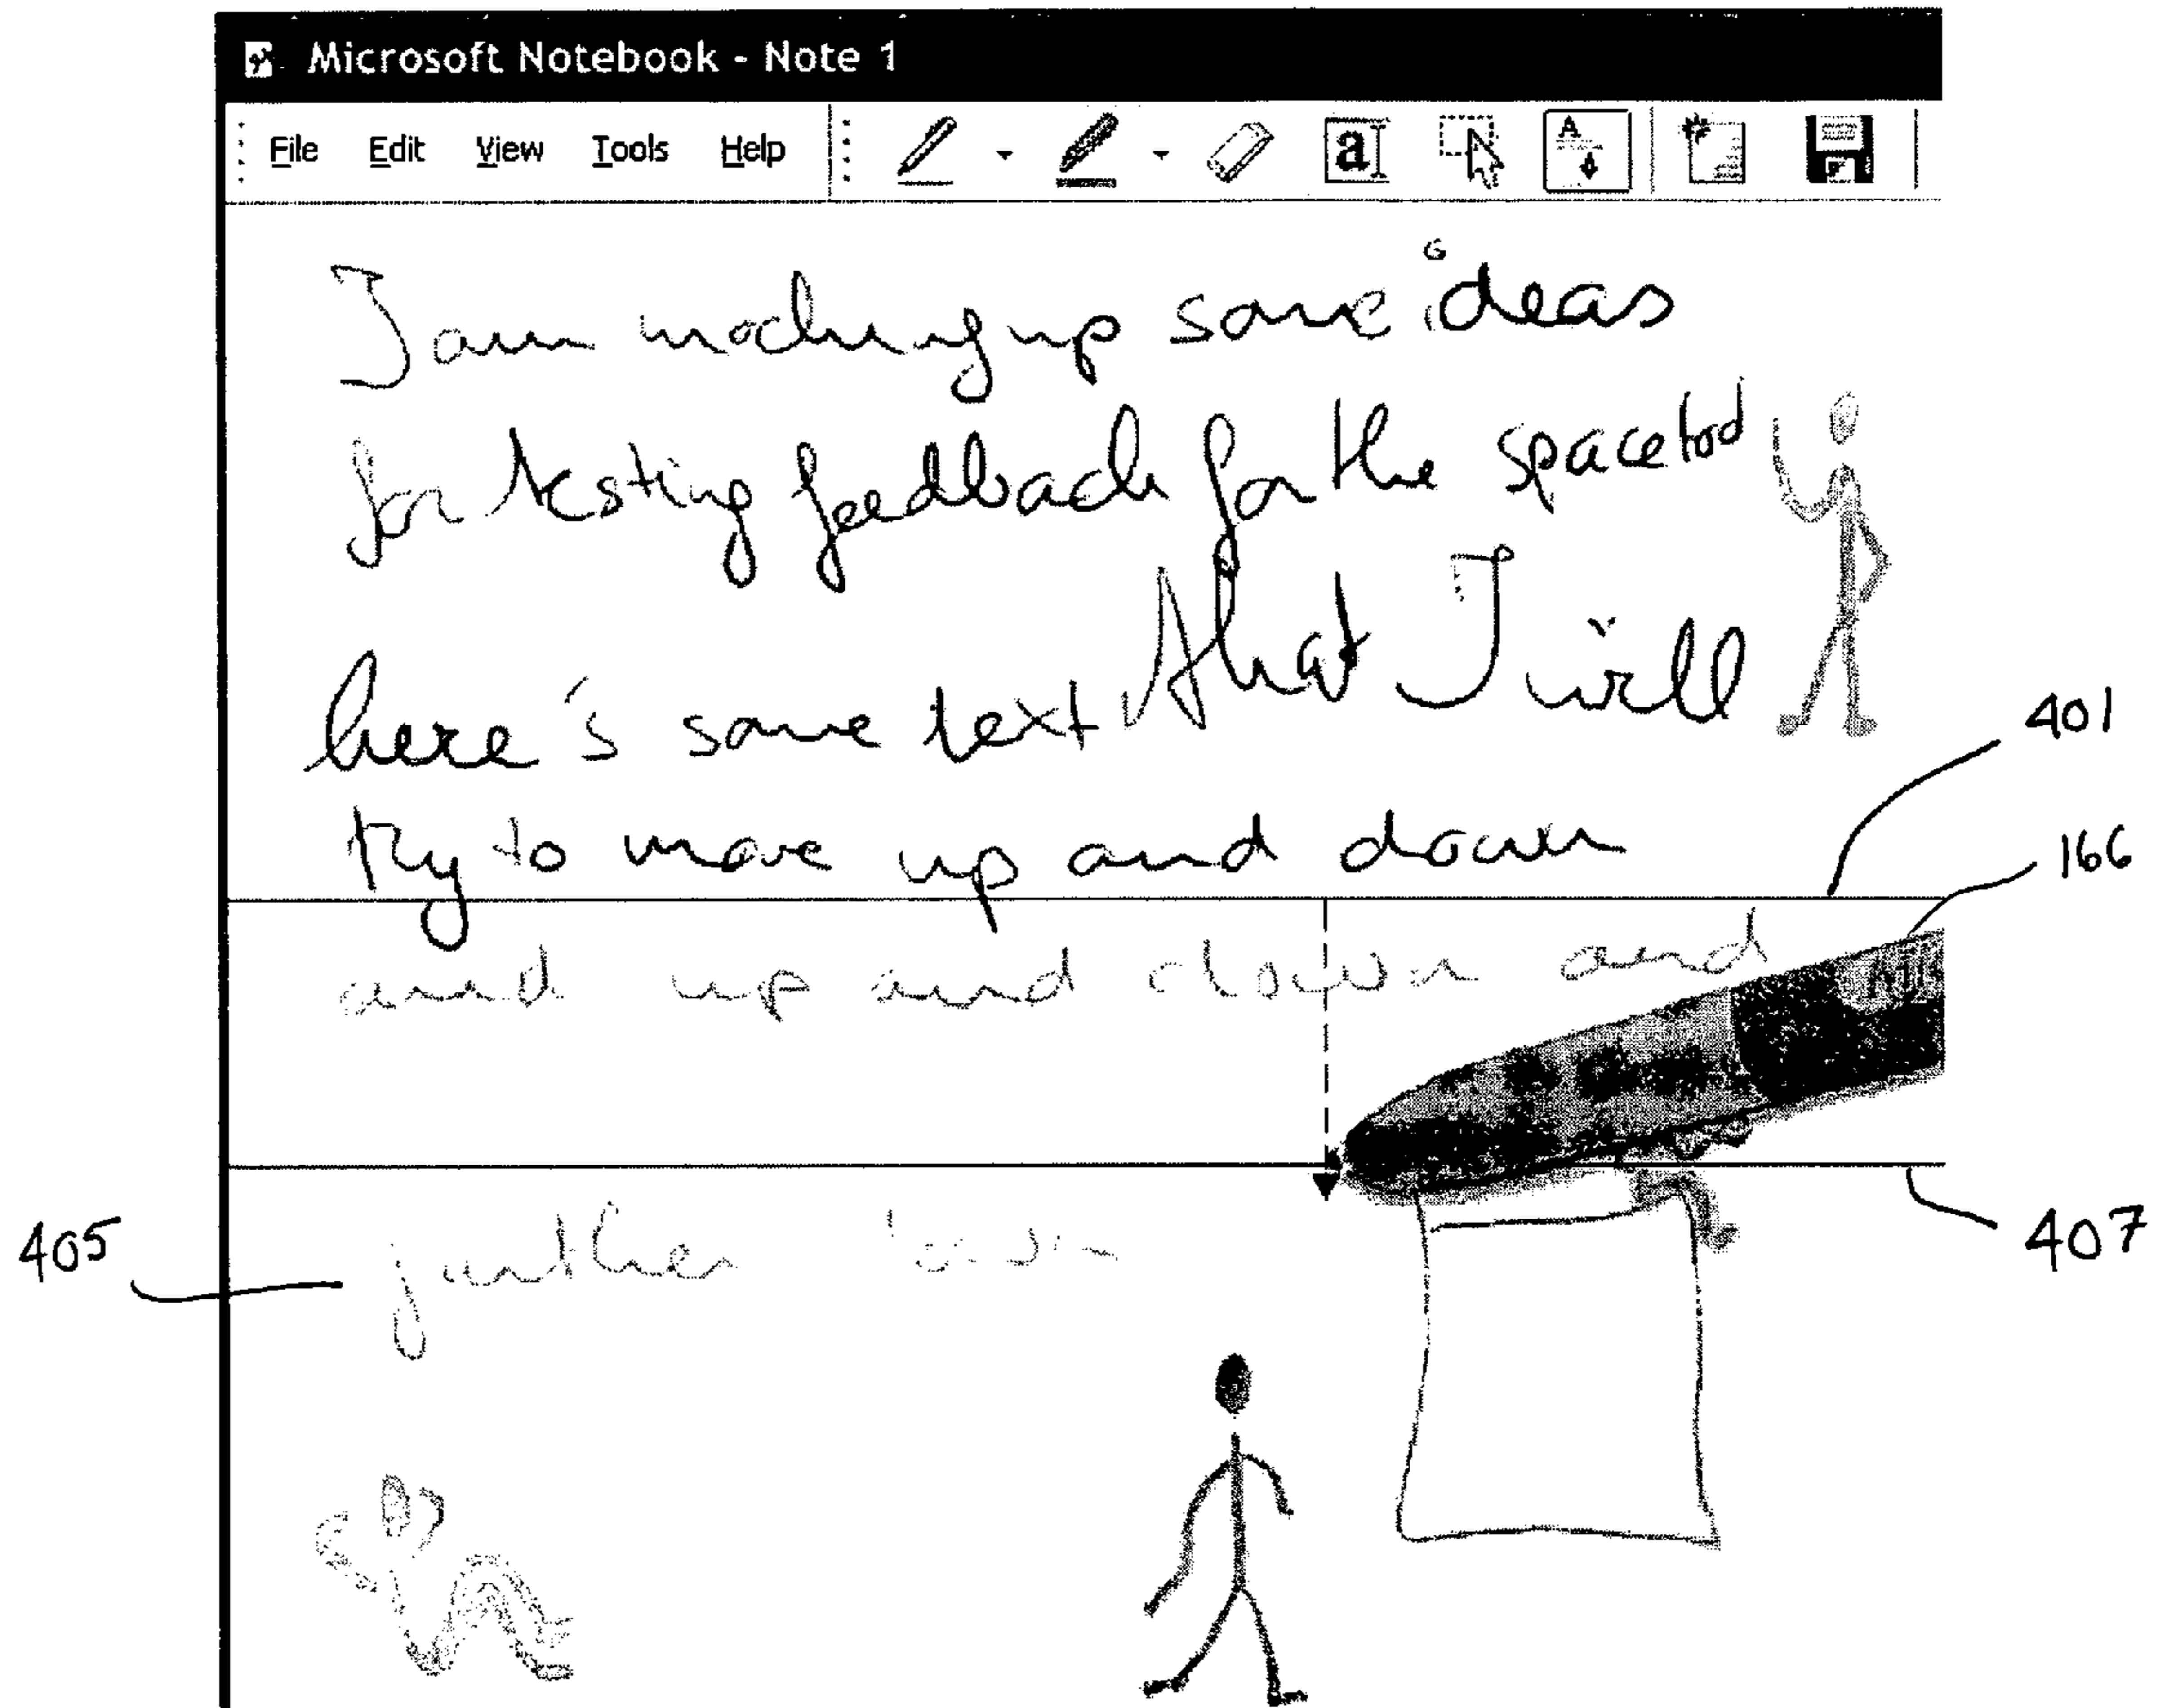 Microsoft Notebook - Note 1
File Edit View Tools Help
I am mocking up some ideas
for testing feedback for the spacetool
here's some text that I will
try to move up and down
401
166
and up and down and
405
further down
407